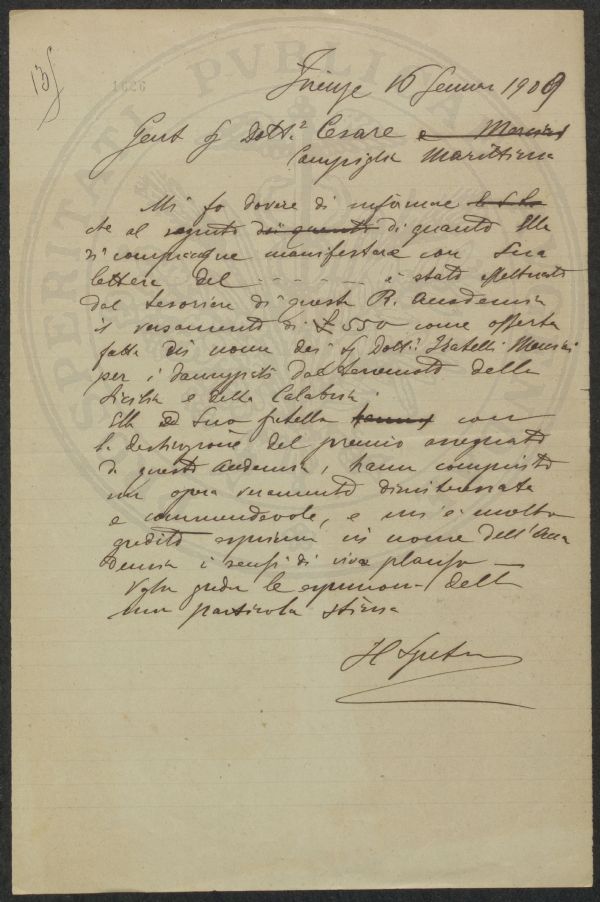 135
1626
PROSPERITATI PVBLICAE
Firenze 16 Gennaio 1909
Gent Sig Dott.e Cesare e Mensini
Campiglia Marittima
Mi fo dovere di informare
che al seguito di quanto Ella
si compiacque manifestare con Sua
lettera del - - - - - - è stato effettuato
dal tesoriere di questa R. Accademia
il versamento di £ 550 come offerta
fatta in nome dei Sig Dott.i Fratelli Mensini
per i danneggiati dal terremoto della
Sicilia e della Calabria.
Ella ed Suo fratello hanno con
la destinazione del premio assegnato
da questa Accademia, hanno compiuto
un opera veramente disinteressata
e commendevole, e mi è molto
gradito esprimere in nome dell'Acca
demia i sensi di vivo plauso —
Voglia gradire le espressioni della
mia particolare stima